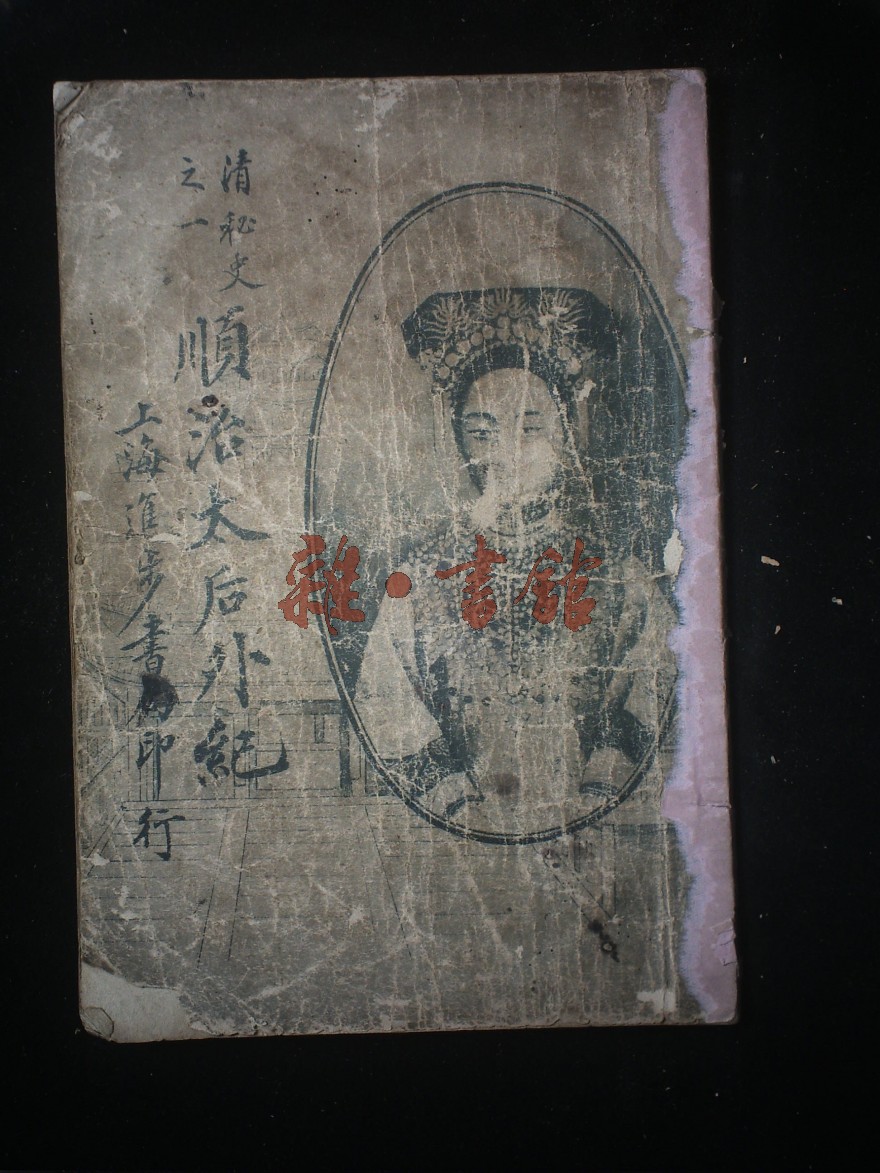 清秘史
之一
順治太后外紀
上海進步書局印行
雜·書館